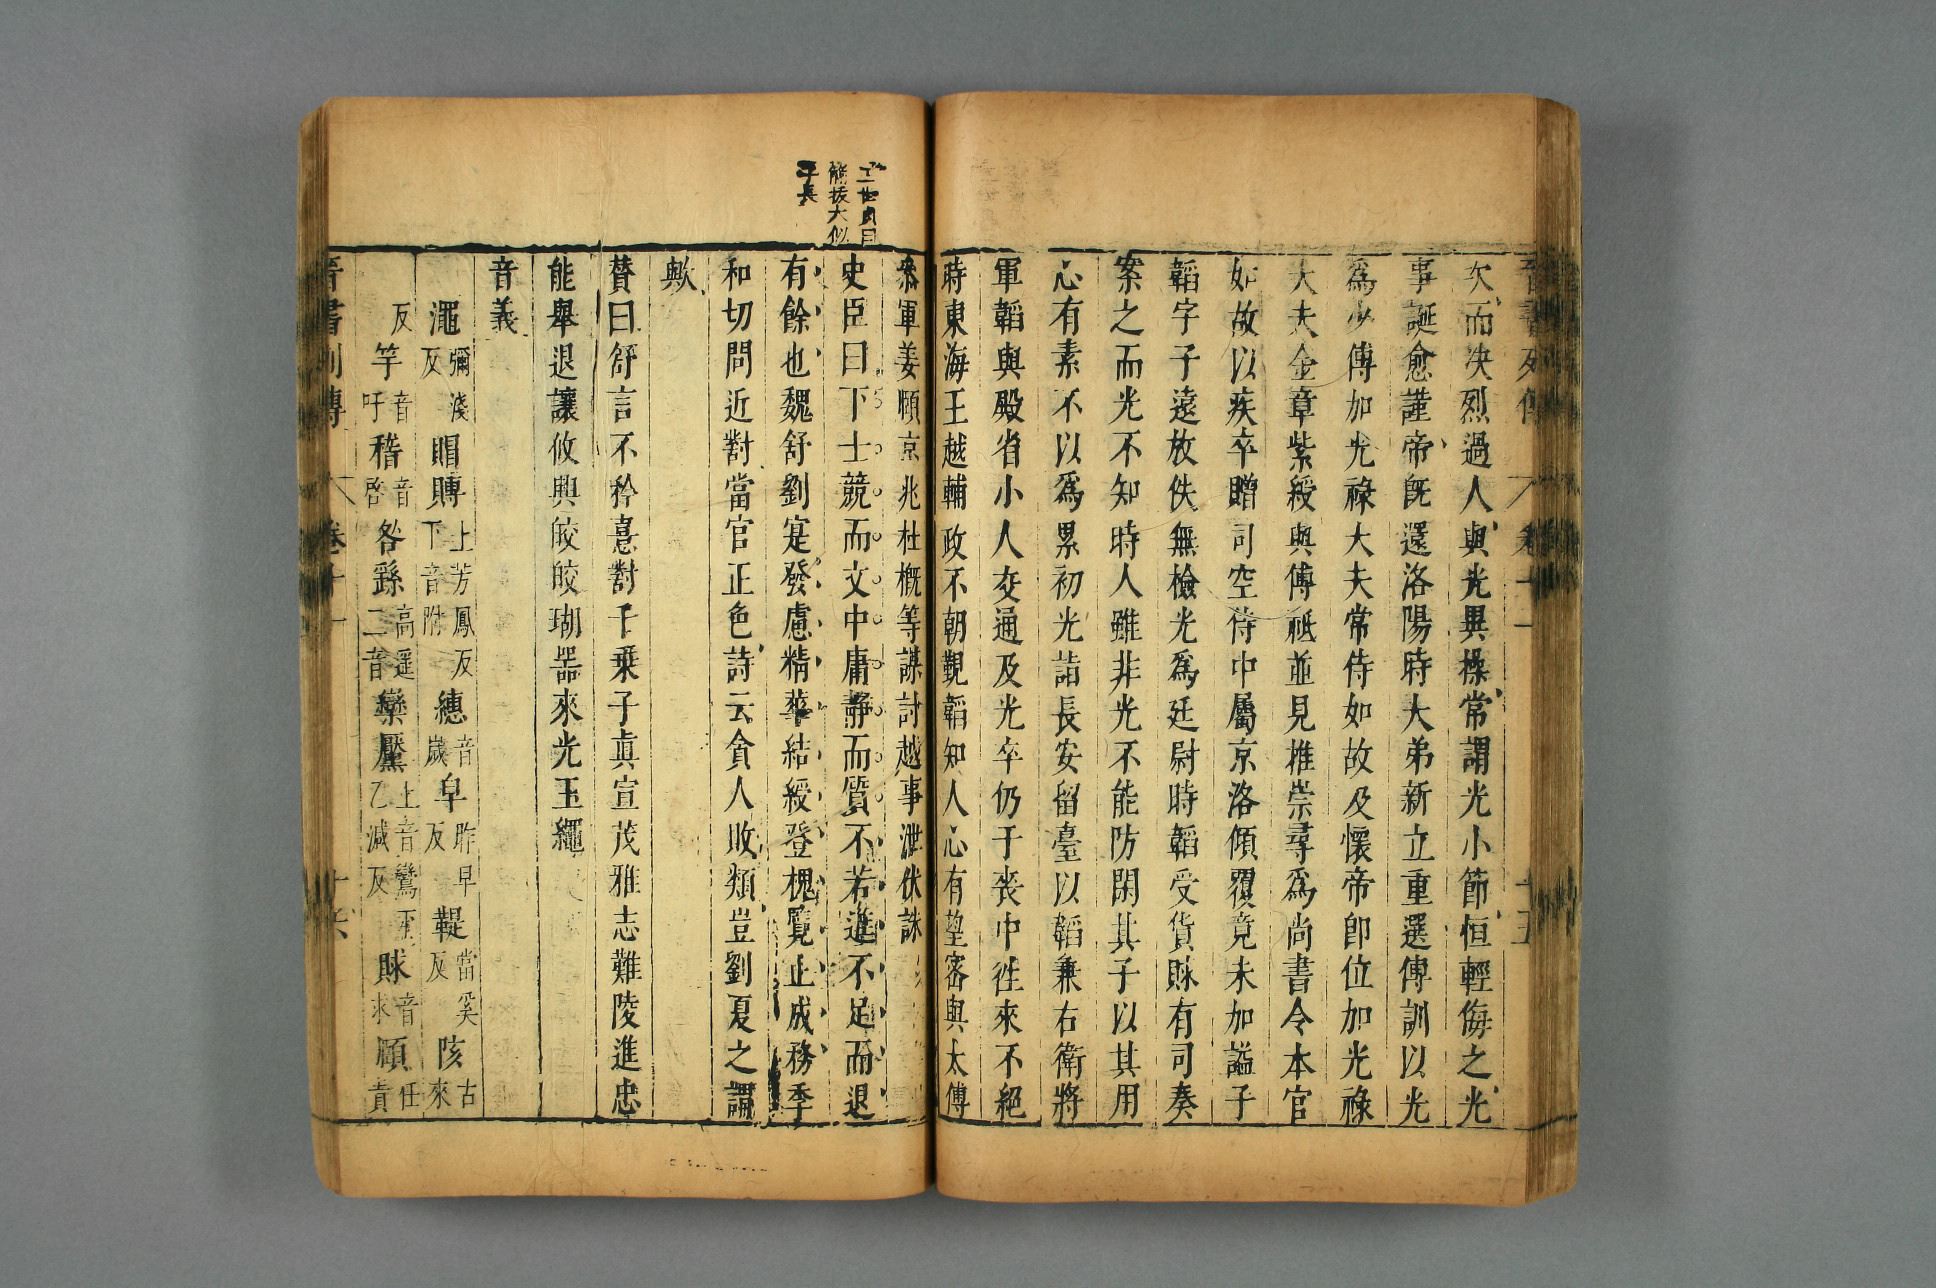 晉書列傳 卷十一 十五
次而決烈過人與光異操常謂光小節恒輕侮之光
事誕愈謹帝既還洛陽時大弟新立重選傅訓以光
爲少傅加光祿大夫常侍如故及懷帝卽位加光祿
大夫金章紫綬與傅祗並見推崇尋爲尚書令本官
如故以疾卒贈司空侍中屬京洛傾覆竟未加謚子
韜字子遠放佚無檢光爲廷尉時韜受貨賕有司奏
案之而光不知時人雖非光不能防閑其子以其用
心有素不以爲累初光詣長安留臺以韜兼右衛將
軍韜與殿省小人交通及光卒仍于喪中徃來不絕
時東海王越輔政不朝覲韜知人心有望密與太傅
叅軍姜頤京兆杜槪等謀討越事泄伏誅
史臣曰下士競而文中庸靜而質不若進不足而退
有餘也魏舒劉寔發慮精華結綬登槐覽止成務季
和切問近對當官正色詩云貪人敗類豈劉夏之謂
歟
贊曰舒言不矜憙對千乗子眞宣茂雅志難陵進忠
能舉退讓攸興皎皎瑚器來光玉繩
音義
澠彌淺反 賵賻上芳鳳反下音附 繐音歲 皁昨早反 鞮當奚反 陔古來
反 竽音吁 稽音啓 咎繇高遥二音 欒黶上音鸞下乙減反 賕音求 頎任責
晉書列傳 卷十一 十六
王世貞曰
簡拔大似
子長